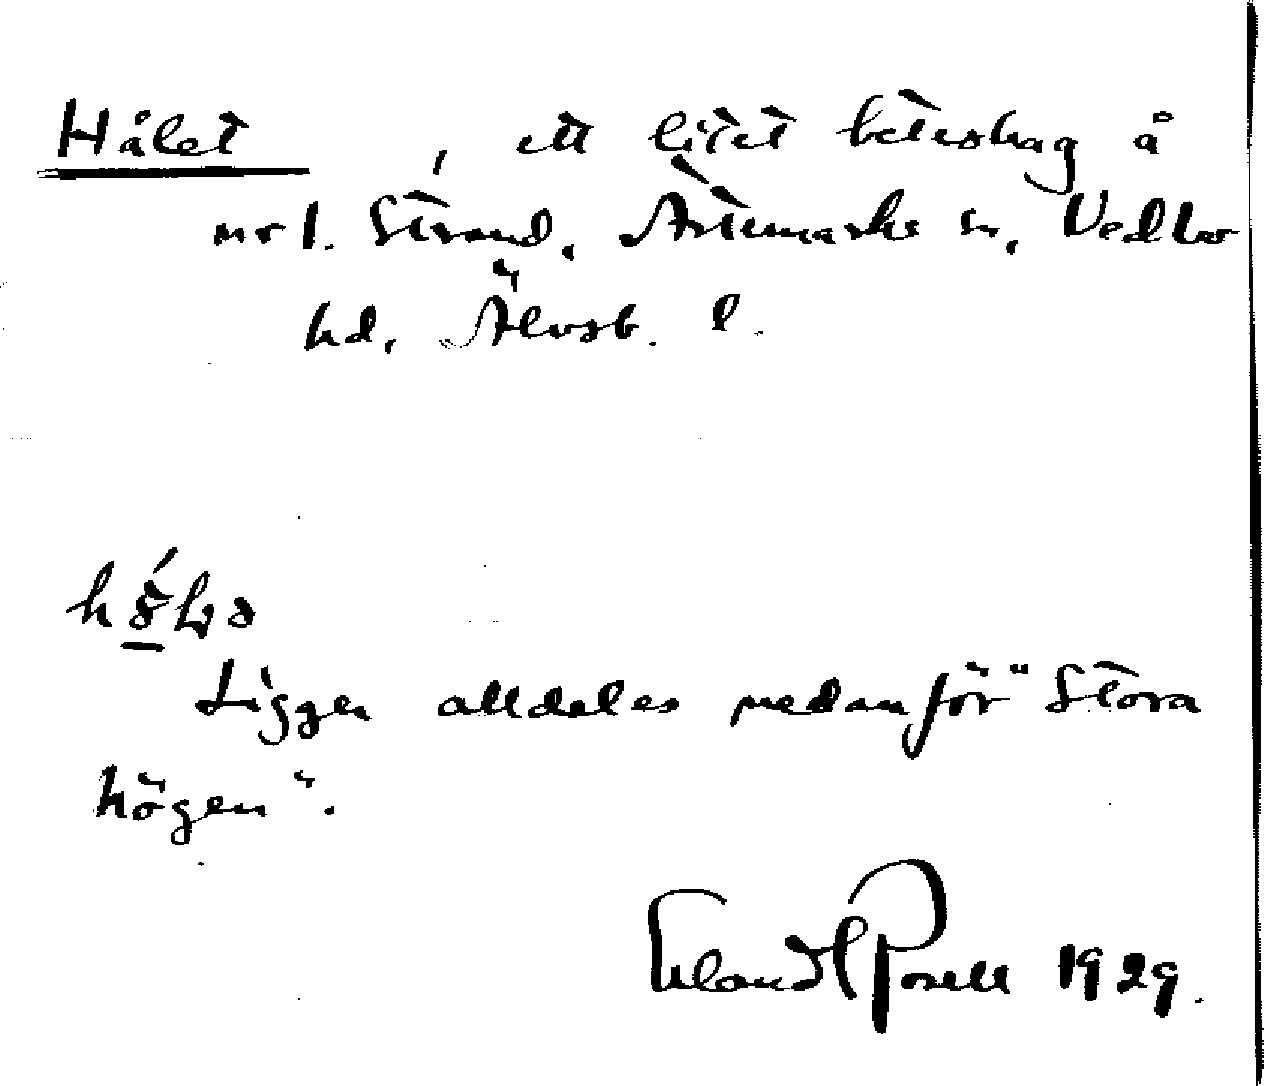 Hålet , ett litet beteshag å
nr 1. Strand, Ärtemarks sn, Vedbo
hd, Älvsb. l.
Ligger alldeles nedanför "Stora
högen".
Erland Rosell 1929.